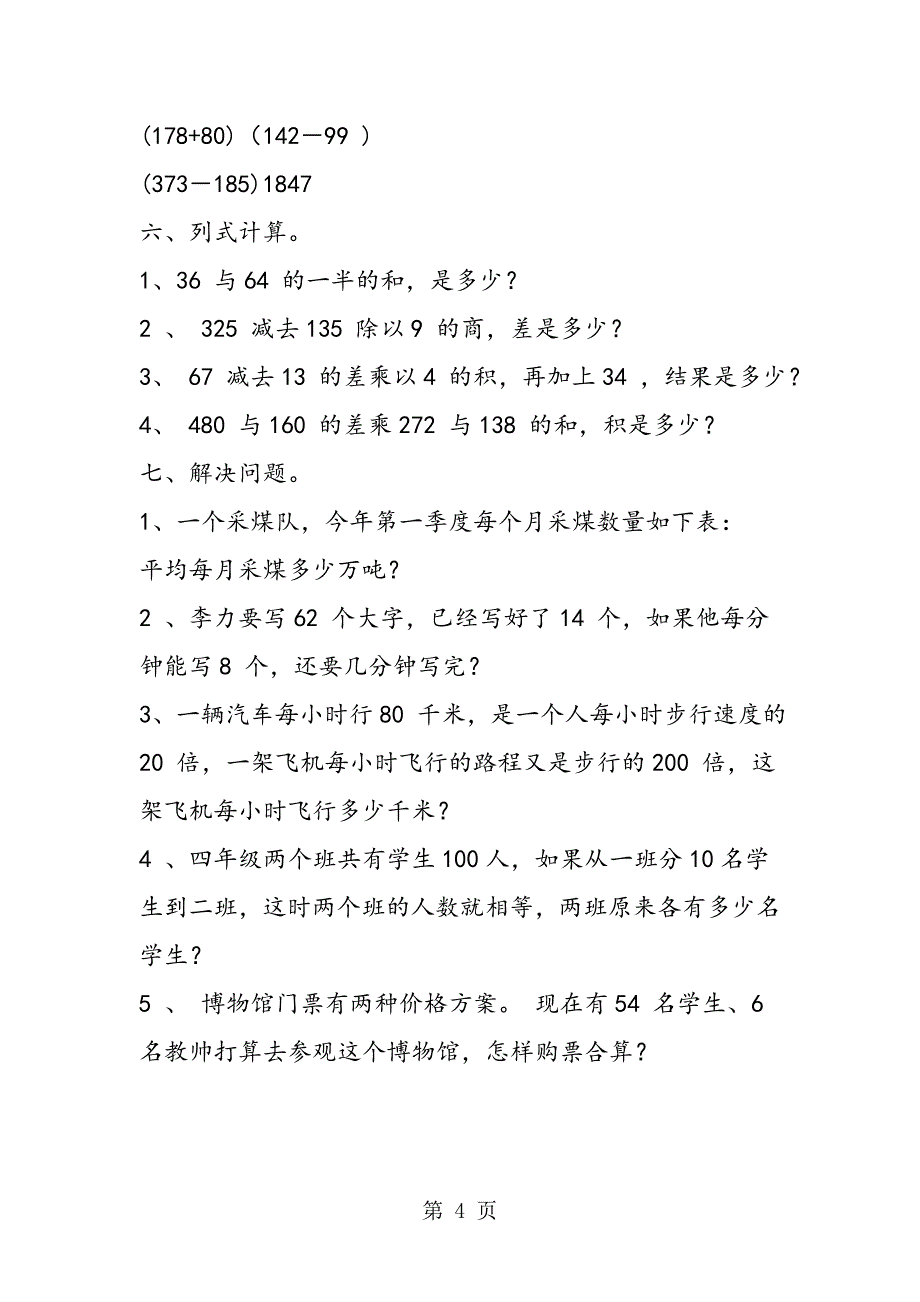 (178+80)(142－99 )
(373－185)1847
六、列式计算。
1、36 与64 的一半的和，是多少？
2 、 325 减去135 除以9 的商，差是多少？
3、 67 减去13 的差乘以4 的积，再加上34 ，结果是多少？
4、 480 与160 的差乘272 与138 的和，积是多少？
七、解决问题。
1、一个采煤队，今年第一季度每个月采煤数量如下表：
平均每月采煤多少万吨？
2 、李力要写62 个大字，已经写好了14 个，如果他每分
钟能写8 个，还要几分钟写完？
3、一辆汽车每小时行80 千米，是一个人每小时步行速度的
20 倍，一架飞机每小时飞行的路程又是步行的200 倍，这
架飞机每小时飞行多少千米？
4 、四年级两个班共有学生100人，如果从一班分10名学
生到二班，这时两个班的人数就相等，两班原来各有多少名
学生？
5 、 博物馆门票有两种价格方案。 现在有54 名学生、6
名教帅打算去参观这个博物馆，怎样购票合算？
第 4 页